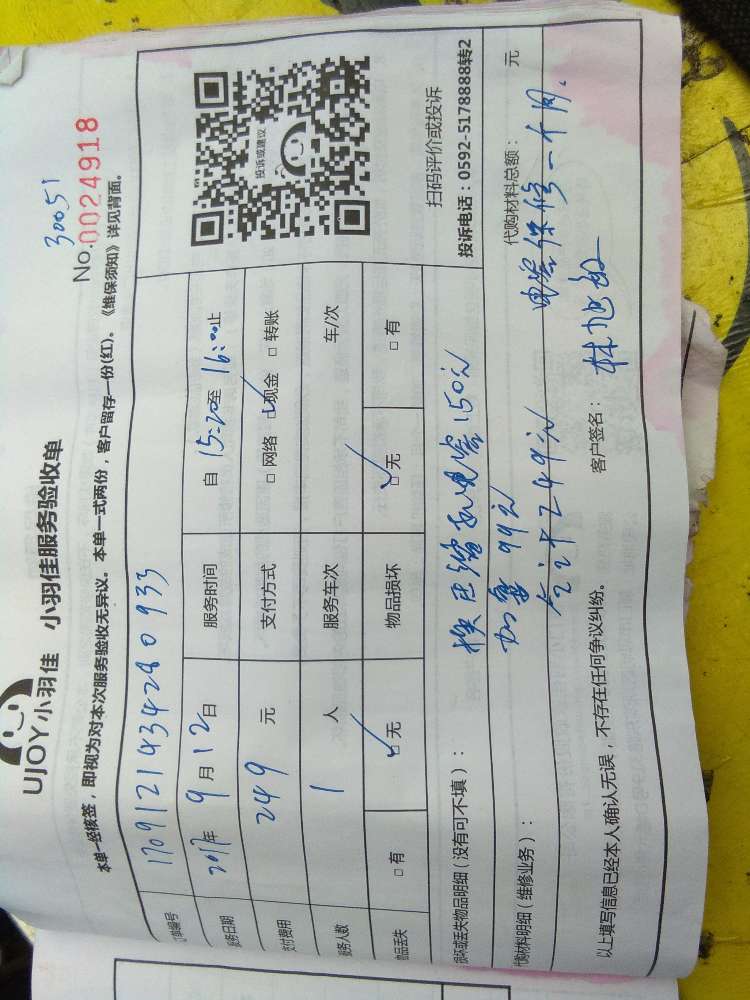 UJOY小羽佳 小羽佳服务验收单
30051
No.0024918
本单一经核签，即视为对本次服务验收无异议。本单一式两份，客户留存一份(红)。《维保须知》详见背面。
订单编号 1709121434280933
服务日期 2017年9月12日 服务时间 自15:20至16:00止
支付费用 249元 支付方式 □网络 ☑现金 □转账
服务人数 1人 服务车次 车/次
物品丢失 □有 ☑无 物品损坏 ☑无 □有
投诉或建议
扫码评价或投诉
投诉电话：0592-5178888转2
损坏或丢失物品明细（没有可不填）： 换压缩机电容150元
代购材料明细（维修业务）： 加氟99元 代购材料总额： 元
合计249元 电容保修一个月.
以上填写信息已经本人确认无误，不存在任何争议纠纷。 客户签名：